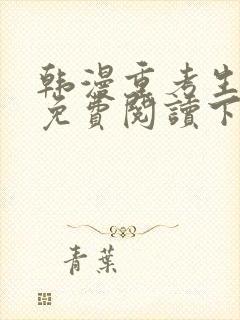 韩漫重考生
免費閱讀下
青葉